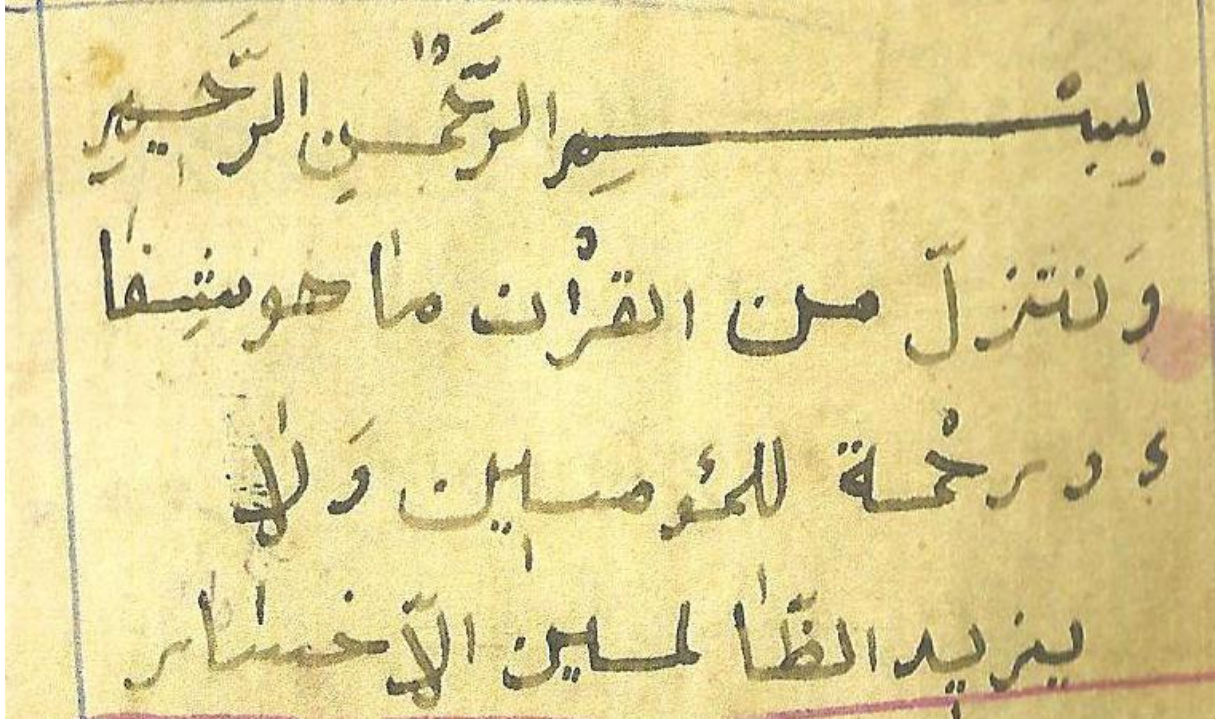 بِبسْمِ الرَّحْمٰنِ الرَّحِيمِ
وَنتزلّ من القرْان ما هو شِفا
ء ورحْمة للمؤمنين وَلا
يزيد الظّالمين الاّ خسار